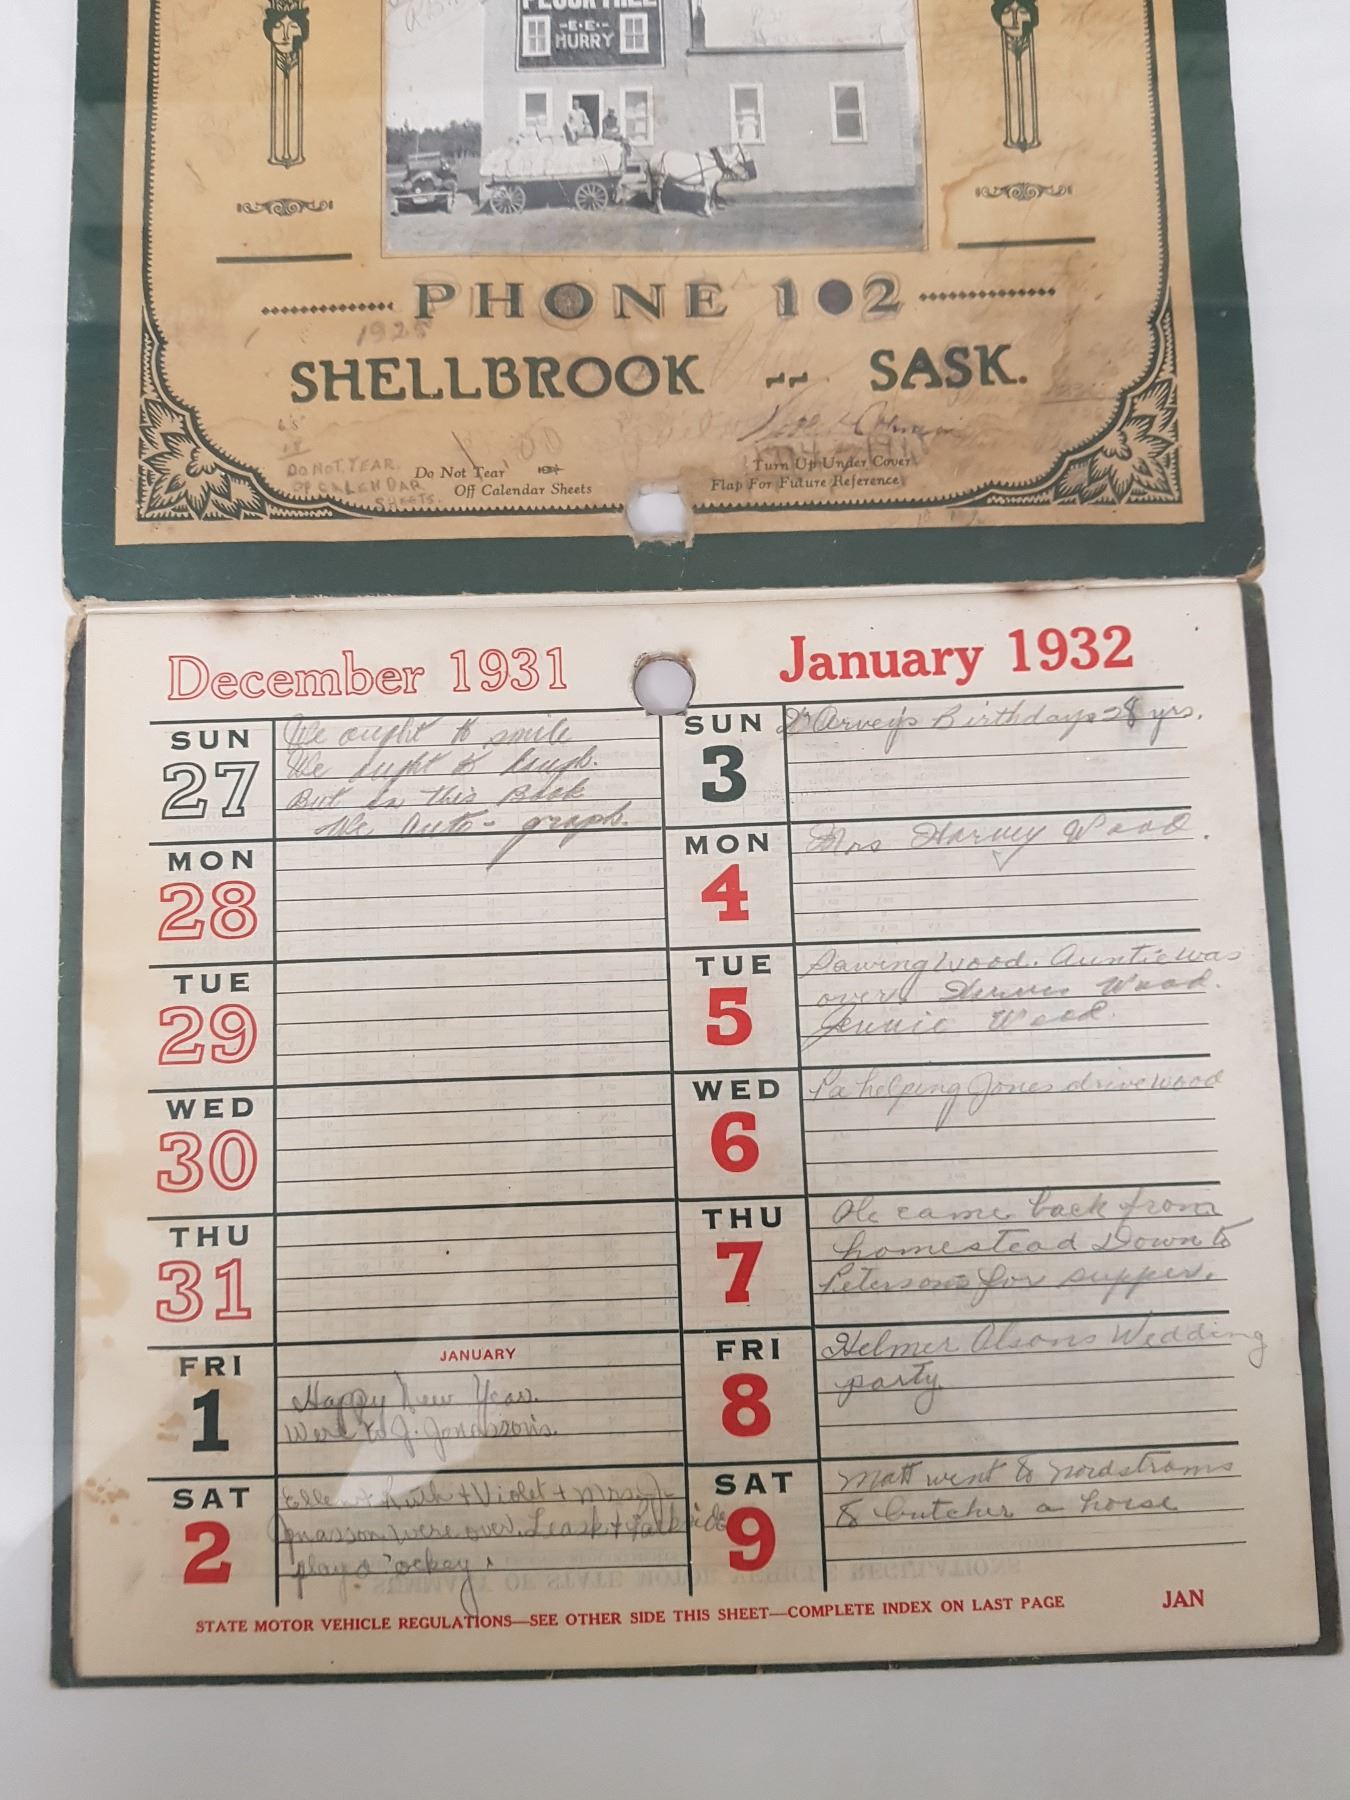 FLOUR MILL
-E·E·-
HURRY
PHONE 102
1925
SHELLBROOK -- SASK.
DO NOT TEAR
OF CALENDAR
SHEETS.
Do Not Tear
Off Calendar Sheets
Turn Up Under Cover
Flap For Future Reference
December 1931
January 1932
SUN
27
We ought to smile
We ought to laugh.
But in this Book
We Auto-graph.
MON
28
TUE
29
WED
30
THU
31
FRI
1
JANUARY
Happy New Year.
Went to J. Jonasson's.
SAT
2
Ellen + Ruth + Violet + Mrs J.
Jonasson were over. Leask + Parkside
play a 'ockey
SUN
3
Harvey's Birthday 28 yrs.
MON
4
Mrs Harvey Wood.
TUE
5
Sawing Wood. Auntie was
over. Wood.
Jennie Wood.
WED
6
Pa helping Jones drive wood
THU
7
He came back from
homestead Down to
Petersons for supper.
FRI
8
Helmer Olsons Wedding
party
SAT
9
Matt went to Nordstroms
to butcher a horse
STATE MOTOR VEHICLE REGULATIONS—SEE OTHER SIDE THIS SHEET—COMPLETE INDEX ON LAST PAGE
JAN